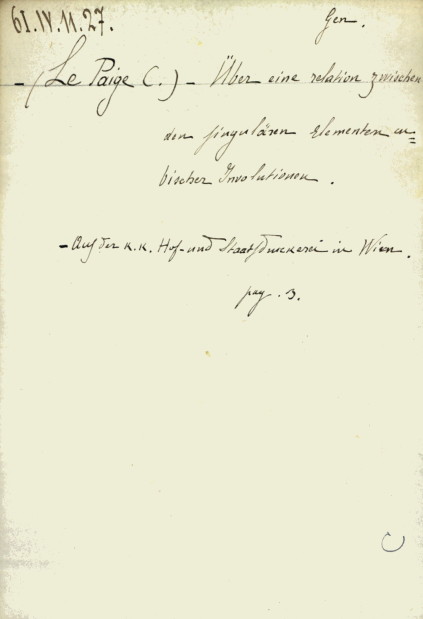 61.IV.11.27.
Gen.
- (Le Paige C.) - Über eine relation zwischen
den singulären Elementen cu=
bischer Involutionen.
- Aus der K.K. Hof- und Staatsdruckerei in Wien.
pag. 3.